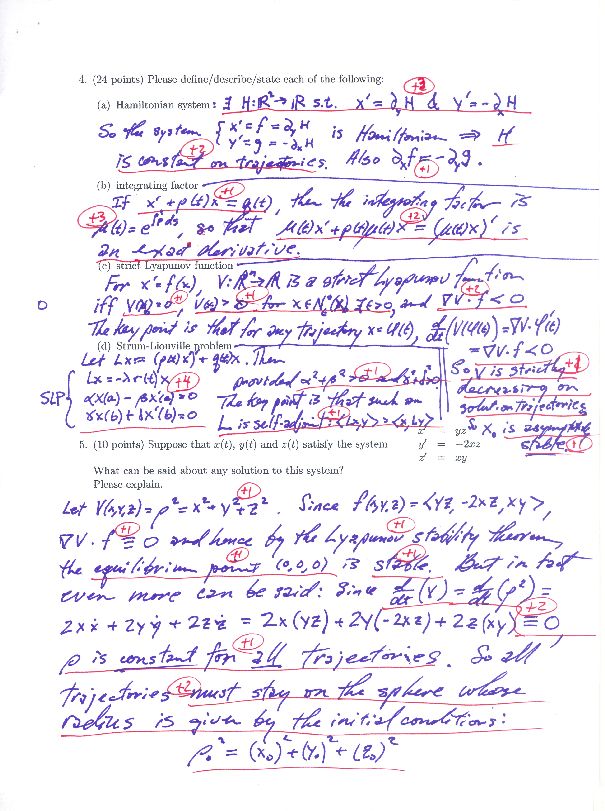 4. (24 points) Please define/describe/state each of the following:
+3
(a) Hamiltonian system: ∃ H:R²→R s.t. x' = ∂yH & y' = -∂xH
So the system { x' = f = ∂yH is Hamiltonian ⇒ H
y' = g = -∂xH
+2
is constant on trajectories. Also ∂xf = -∂yg.
+1
(b) integrating factor
+1
If x' + p(t)x = g(t), then the integrating factor is
+3
μ(t) = e^∫pds, so that μ(t)x' + p(t)μ(t)x = (μ(t)x)' is
+2
an exact derivative.
(c) strict Lyapunov function
For x' = f(x), V:Rⁿ→R is a strict Lyapunov function
0 iff V(x₀)=0, V(x)>0 for x∈Nε(x₀) ∃ε>0, and ∇V·f < 0
+1 +1 +2
The key point is that for any trajectory x=φ(t), d/dt(V(φ(t))=∇V·φ'(t)
(d) Strum-Liouville problem
= ∇V·f < 0
Let Lx = (p(t)x')' + q(t)x. Then
So V is strictly +1
SLP { Lx = -λr(t)x +4 provided α²+β²>0 and γ²+δ²>0 +1
decreasing on
αx(a) - βx'(a) = 0 The key point is that such an
solution trajectories
γx(b) + δx'(b) = 0 L is self-adjoint: <Lx,y> = <x,Ly> +1
so x₀ is asympt.
stable. +1
x' yz
5. (10 points) Suppose that x(t), y(t) and z(t) satisfy the system y' = -2xz
z' = xy
What can be said about any solution to this system?
Please explain.
+1
Let V(x,y,z) = ρ² = x²+y²+z². Since f(x,y,z) = <yz, -2xz, xy>,
+1 +1
∇V·f ≡ 0 and hence by the Lyapunov stability theorem,
+1 +1
the equilibrium point (0,0,0) is stable. But in fact
even more can be said: Since d/dt(V) = d/dt(ρ²) =
+2
2xẋ + 2yẏ + 2zż = 2x(yz) + 2y(-2xz) + 2z(xy) ≡ 0
+1
ρ is constant for all trajectories. So all
+2
trajectories must stay on the sphere whose
radius is given by the initial conditions:
ρ₀² = (x₀)² + (y₀)² + (z₀)²